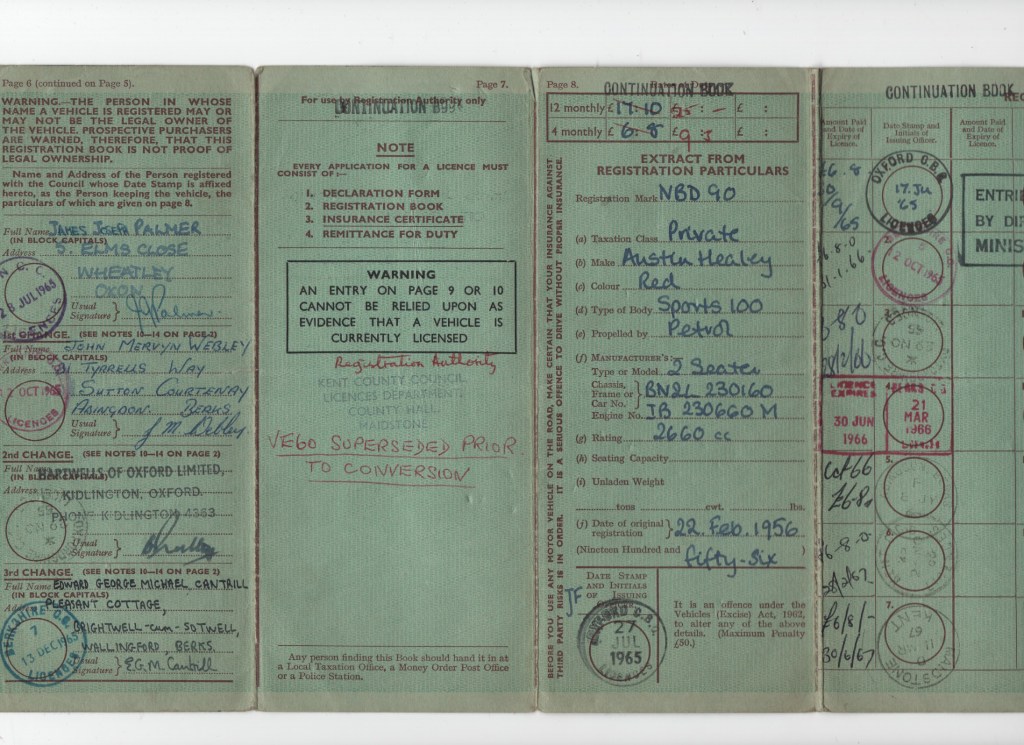 Page 6 (continued on Page 5).
WARNING.—THE PERSON IN WHOSE
NAME A VEHICLE IS REGISTERED MAY OR
MAY NOT BE THE LEGAL OWNER OF
THE VEHICLE. PROSPECTIVE PURCHASERS
ARE WARNED, THEREFORE, THAT THIS
REGISTRATION BOOK IS NOT PROOF OF
LEGAL OWNERSHIP.
Name and Address of the Person registered
with the Council whose Date Stamp is affixed
hereto, as the Person keeping the vehicle, the
particulars of which are given on page 8.
Full Name JAMES JOSEPH PALMER
(IN BLOCK CAPITALS)
Address 5. ELMS CLOSE
WHEATLEY
OXON
28 JUL 1965
LICENCES
Usual Signature } J J Palmer
1st CHANGE. (SEE NOTES 10—14 ON PAGE 2)
Full Name JOHN MERVYN WEBLEY
(IN BLOCK CAPITALS)
Address 31 TYRRELLS WAY
SUTTON COURTENAY
ABINGDON. BERKS.
OCT 1965
LICENCES
Usual Signature } J. M. Webley.
2nd CHANGE. (SEE NOTES 10—14 ON PAGE 2)
Full Name HARTWELLS OF OXFORD LIMITED,
(IN BLOCK CAPITALS)
Address KIDLINGTON, OXFORD.
PHONE KIDLINGTON 4363
Usual Signature }
3rd CHANGE. (SEE NOTES 10—14 ON PAGE 2)
Full Name EDWARD GEORGE MICHAEL CANTRILL
(IN BLOCK CAPITALS)
Address PLEASANT COTTAGE,
BRIGHTWELL-CUM-SOTWELL,
WALLINGFORD, BERKS.
BERKSHIRE C.C.
7
13 DEC 1965
LICENCES
Usual Signature } E.G.M. Cantrill
Page 7.
For use by Registration Authority only
CONTINUATION BOOK
NOTE
EVERY APPLICATION FOR A LICENCE MUST
CONSIST OF:—
1. DECLARATION FORM
2. REGISTRATION BOOK
3. INSURANCE CERTIFICATE
4. REMITTANCE FOR DUTY
WARNING
AN ENTRY ON PAGE 9 OR 10
CANNOT BE RELIED UPON AS
EVIDENCE THAT A VEHICLE IS
CURRENTLY LICENSED
Registration Authority
KENT COUNTY COUNCIL
LICENCES DEPARTMENT,
COUNTY HALL,
MAIDSTONE
VE60 SUPERSEDED PRIOR
TO CONVERSION
Any person finding this Book should hand it in at
a Local Taxation Office, a Money Order Post Office
or a Police Station.
Page 8.
CONTINUATION BOOK
12 monthly £ 17.10 £ :
4 monthly £ 6.8 £ :
EXTRACT FROM
REGISTRATION PARTICULARS
Registration Mark NBD 90
(a) Taxation Class Private
(b) Make Austin Healey
(c) Colour Red
(d) Type of Body Sports 100
(e) Propelled by Petrol
(f) MANUFACTURER'S:
Type or Model 2 Seater
Chassis, Frame or Car No. } BN2L 230160
Engine No. IB 230660 M
(g) Rating 2660 cc
(h) Seating Capacity
(i) Unladen Weight
tons cwt. lbs.
(j) Date of original registration } 22. Feb. 1956
(Nineteen Hundred and fifty-six )
DATE STAMP
AND INITIALS
OF ISSUING
JF
27
JUL
1965
LICENCES
It is an offence under the
Vehicles (Excise) Act, 1962,
to alter any of the above
details. (Maximum Penalty
£50.)
BEFORE YOU USE ANY MOTOR VEHICLE ON THE ROAD, MAKE CERTAIN THAT YOUR INSURANCE AGAINST
THIRD PARTY RISKS IS IN ORDER. IT IS A SERIOUS OFFENCE TO DRIVE WITHOUT PROPER INSURANCE.
CONTINUATION BOOK
Amount Paid and Date of Expiry of Licence.
Date Stamp and Initials of Issuing Officer.
Amount Paid and Date of Expiry of Licence.
OXFORD
65
LICENCES
ENTRI
BY DI
MINIS
OCT 1965
LICENCES
LICENCE
EXPIRES
30 JUN
1966
21
MAR
1966
5.
£6.8
6.
7.
KENT
MAIDSTONE
30/6/67